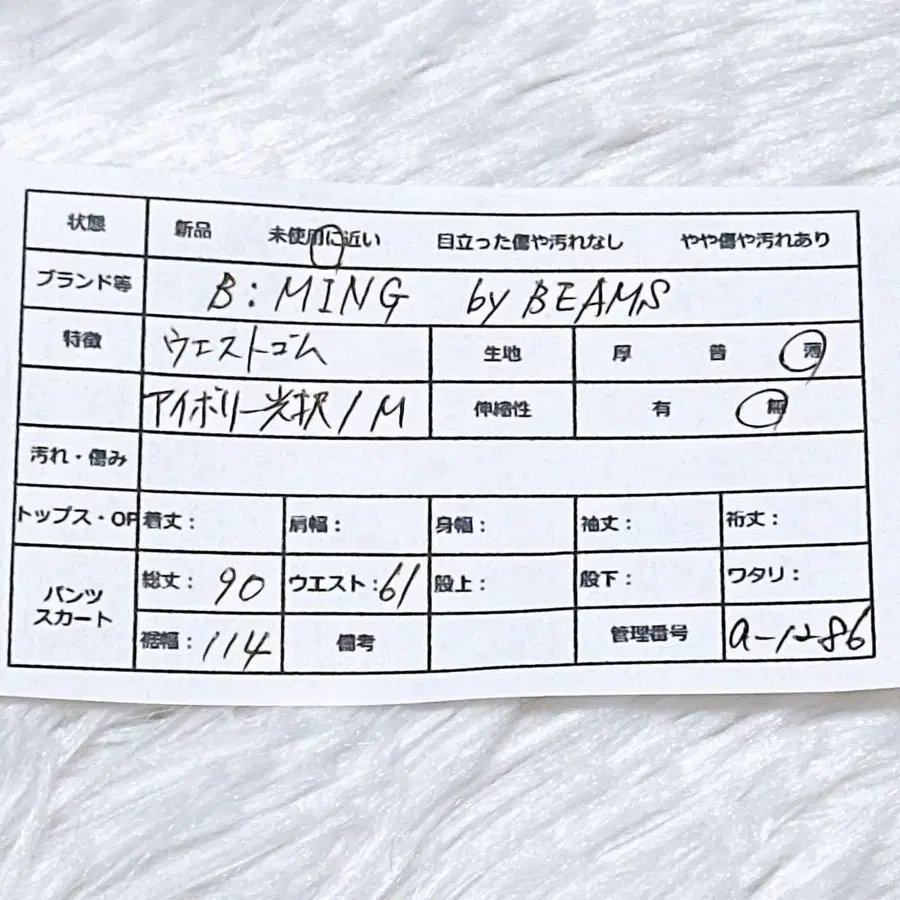 状態 新品 未使用に近い 目立った傷や汚れなし やや傷や汚れあり
ブランド等 B:MING by BEAMS
特徴 ウエストゴム 生地 厚 普 薄
アイボリー光択/M 伸縮性 有 無
汚れ・傷み
トップス・OP 着丈: 肩幅: 身幅: 袖丈: 裄丈:
パンツ スカート 総丈: 90 ウエスト:61 股上: 股下: ワタリ:
裾幅: 114 備考 管理番号 a-1286